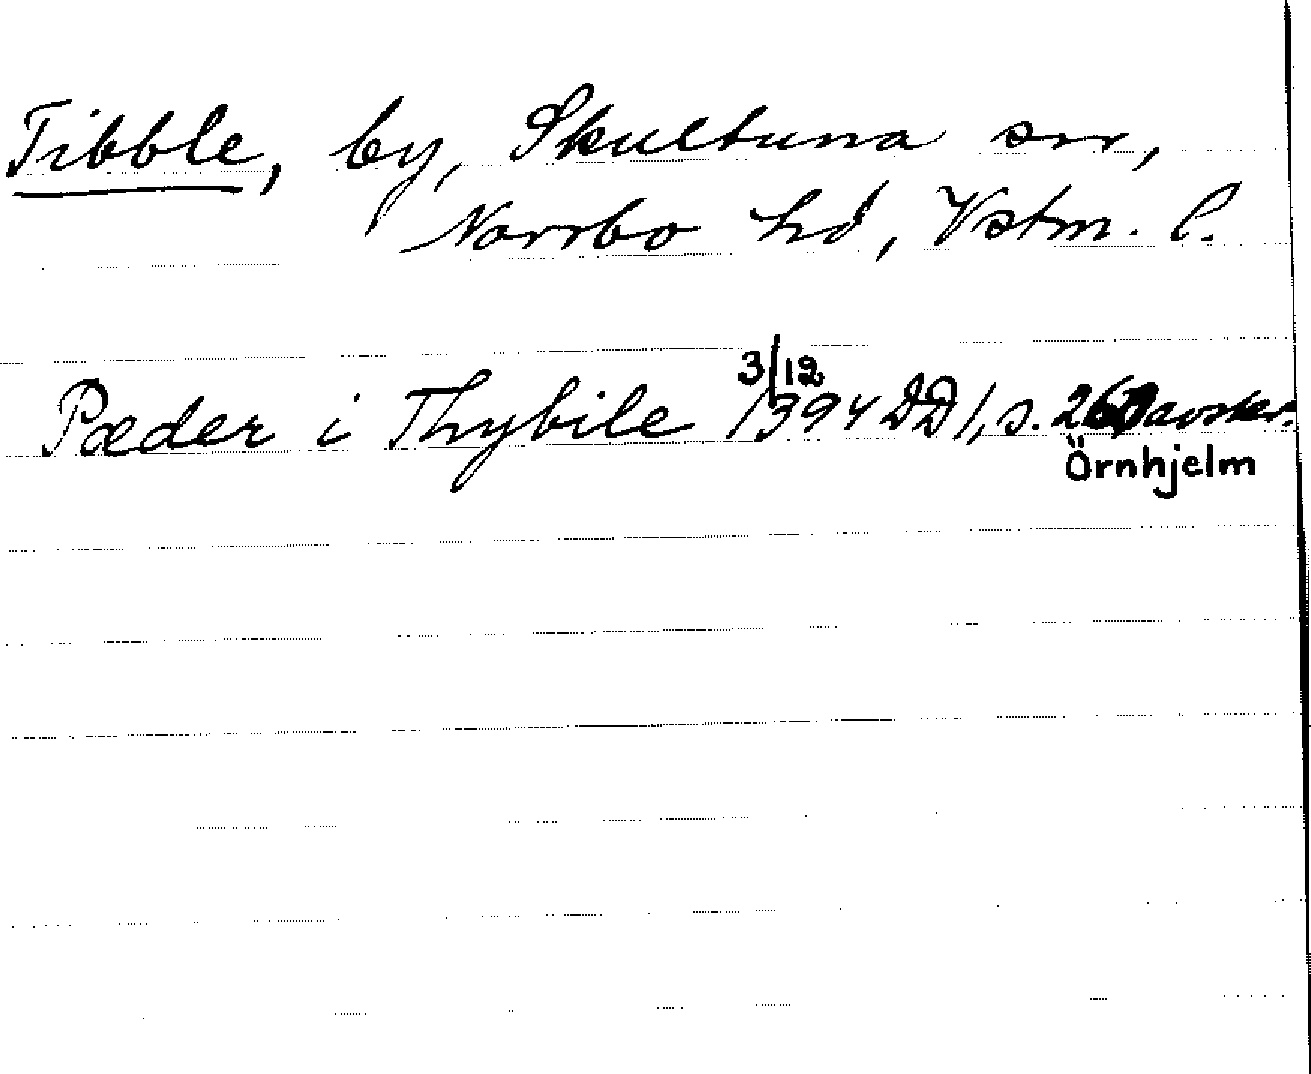 Tibble, by, Skultuna sn,
Norrbo hd, Vstm. l.
Pæder i Thybile 3/12 1394 DD 1, s. 260 avskr.
Örnhjelm